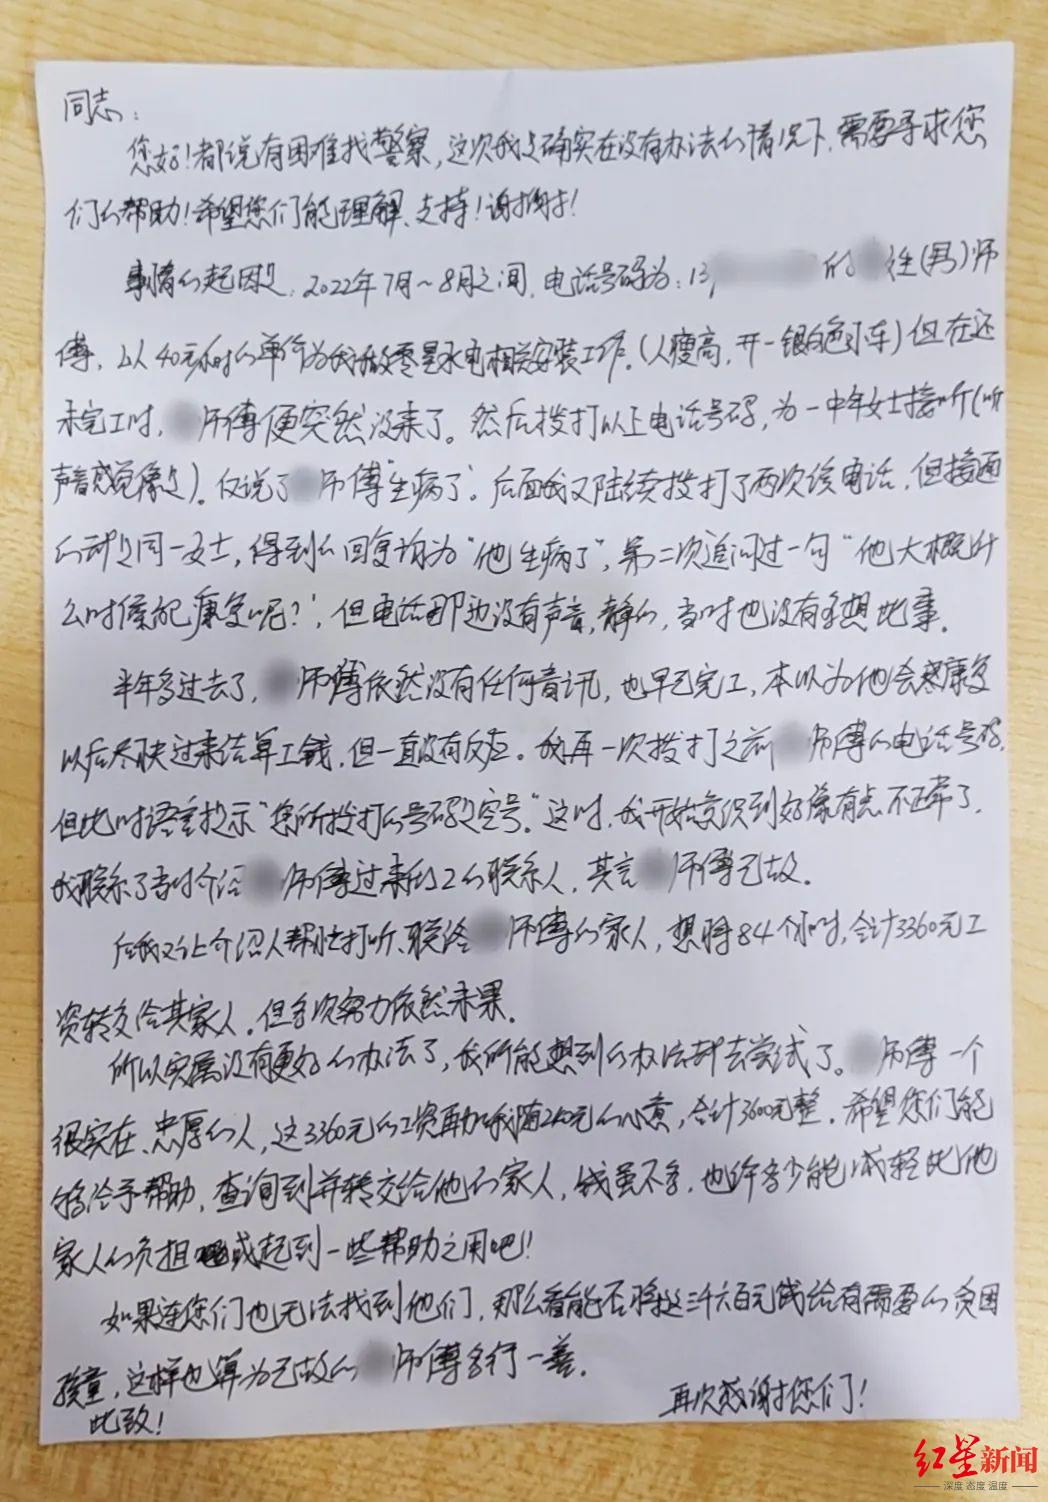 同志：
您好！都说有困难找警察，这次我是确实在没有办法的情况下，需要寻求您
们的帮助！希望您们能理解、支持！谢谢！
事情的起因是：2022年7月～8月之间，电话号码为：13 的 姓(男)师
傅，以40元/小时的单价为我做零星水电相关安装工作。(人瘦高，开一银白色小车)但在还
未完工时， 师傅便突然没来了。然后拨打以上电话号码，为一中年女士接听(听
声音感觉像是)。仅说了 师傅"生病了"。后面我又陆续拨打了两次该电话，但接通
的都是同一女士，得到的回复均为"他生病了"，第二次追问过一句"他大概什
么时候能康复呢？"，但电话那边没有声音，静的，当时也没有多想此事。
半年多过去了， 师傅依然没有任何音讯，也早已完工，本以为他会康复
以后尽快过来结算工钱，但一直没有反应。我再一次拨打之前 师傅的电话号码，
但此时语音提示"您所拨打的号码是空号。"这时，我开始意识到好像有点不正常了，
我联系了当时介绍 师傅过来做工的联系人，其言 师傅已故。
后我又让介绍人帮忙打听、联络 师傅的家人，想将84个小时，合计3360元工
资转交给其家人。但多次努力依然未果。
所以实属没有更好的办法了，我所能想到的办法都去尝试了。 师傅一个
很实在、忠厚的人，这3360元的工资再加我随240元的心意，合计3600元整。希望您们能
够给予帮助，查询到并转交给他的家人，钱虽不多，也许多少能减轻此他
家人的负担或起到一些帮助之用吧！
如果连您们也无法找到他们，那么看能否将这三千六百元钱给有需要的贫困
孩童，这样也算为已故的 师傅多行一善。
此致！ 再次感谢您们！
红星新闻
深度 态度 温度